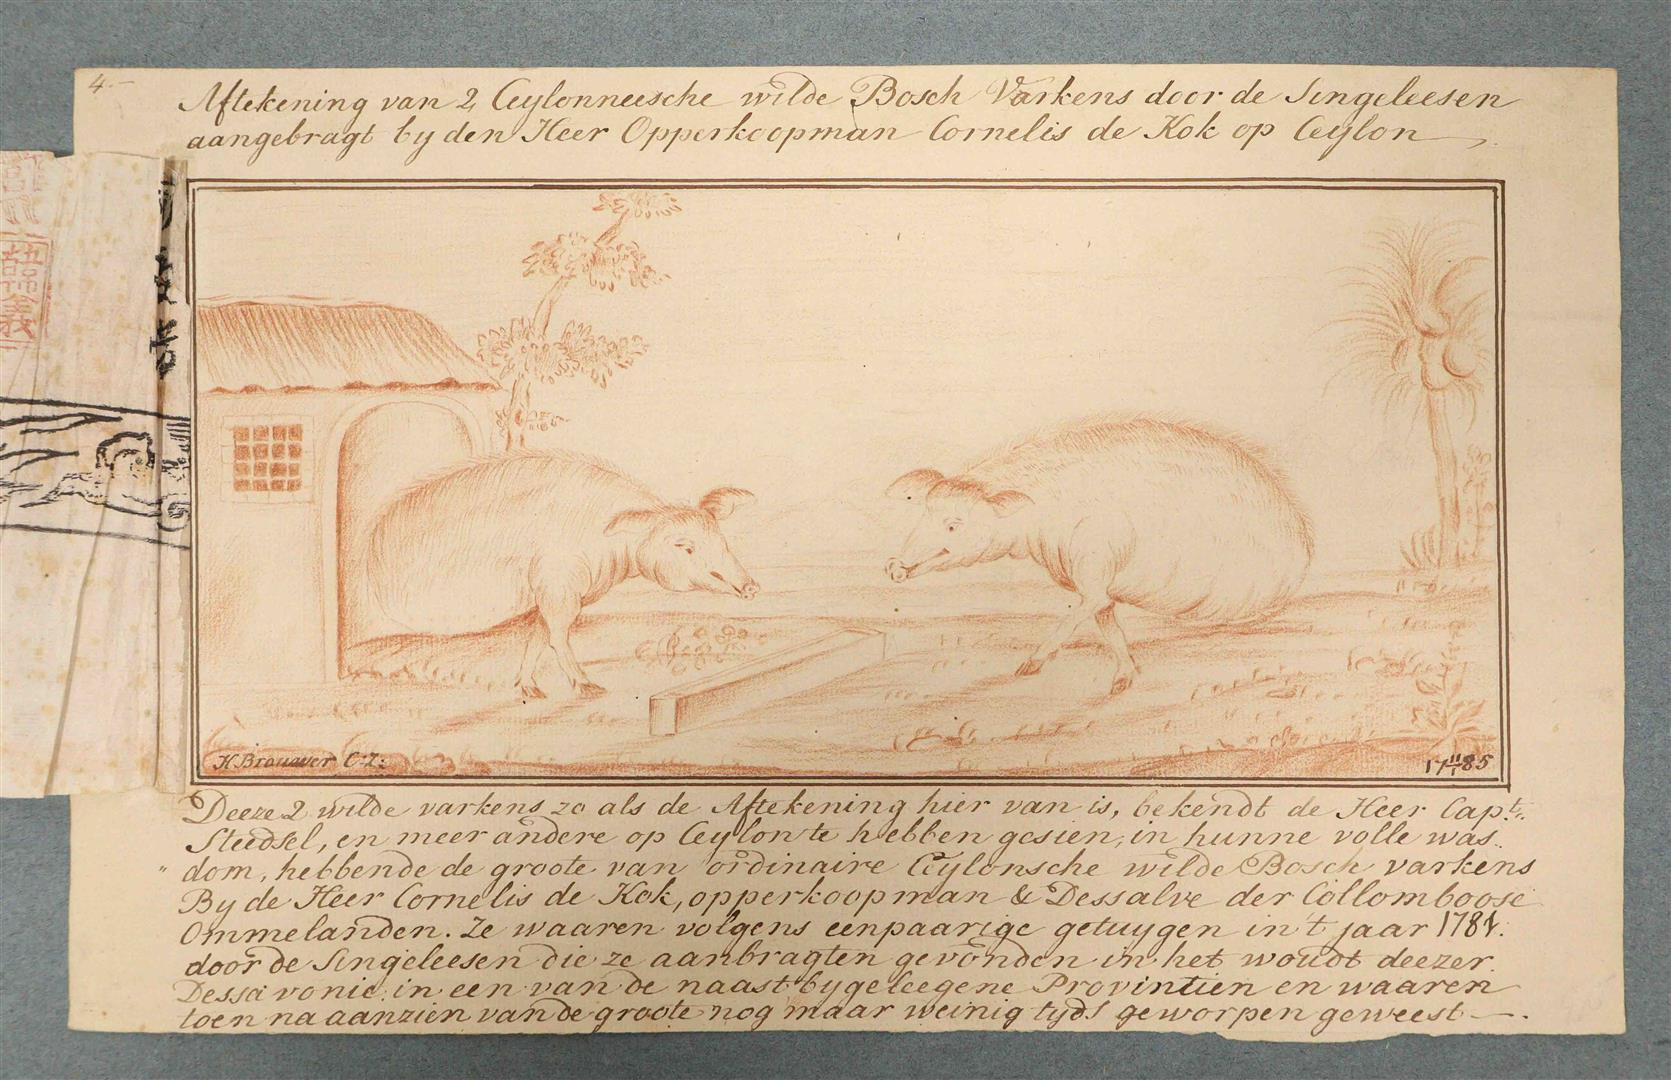 4-
Aftekening van 2, Ceylonneesche wilde Bosch Varkens door de Singeleesen
aangebragt by den Heer Opperkoopman Cornelis de Kok op Ceylon
H Brouwer C:Z:
17 11/1 85
Deeze 2 wilde varkens, zo als de Aftekening hier van is, bekendt de Heer Capt:
en meer andere op Ceylon te hebben gesien, in hunne volle was
dom, hebbende de groote van ordinaire Ceylonsche wilde Bosch varkens
By de Heer Cornelis de Kok, opperkoopman & Dessalve der Collomboose
Ommelanden. Ze waaren volgens eenpaarige getuygen in 't jaar
door de Singeleesen die ze aanbragten gevonden in het woudt deezer
Dessavonie, in een van de naast bygeleegene Provintien en waaren
toen na aanzien van de groote nog maar weinig tyds geworpen geweest —.